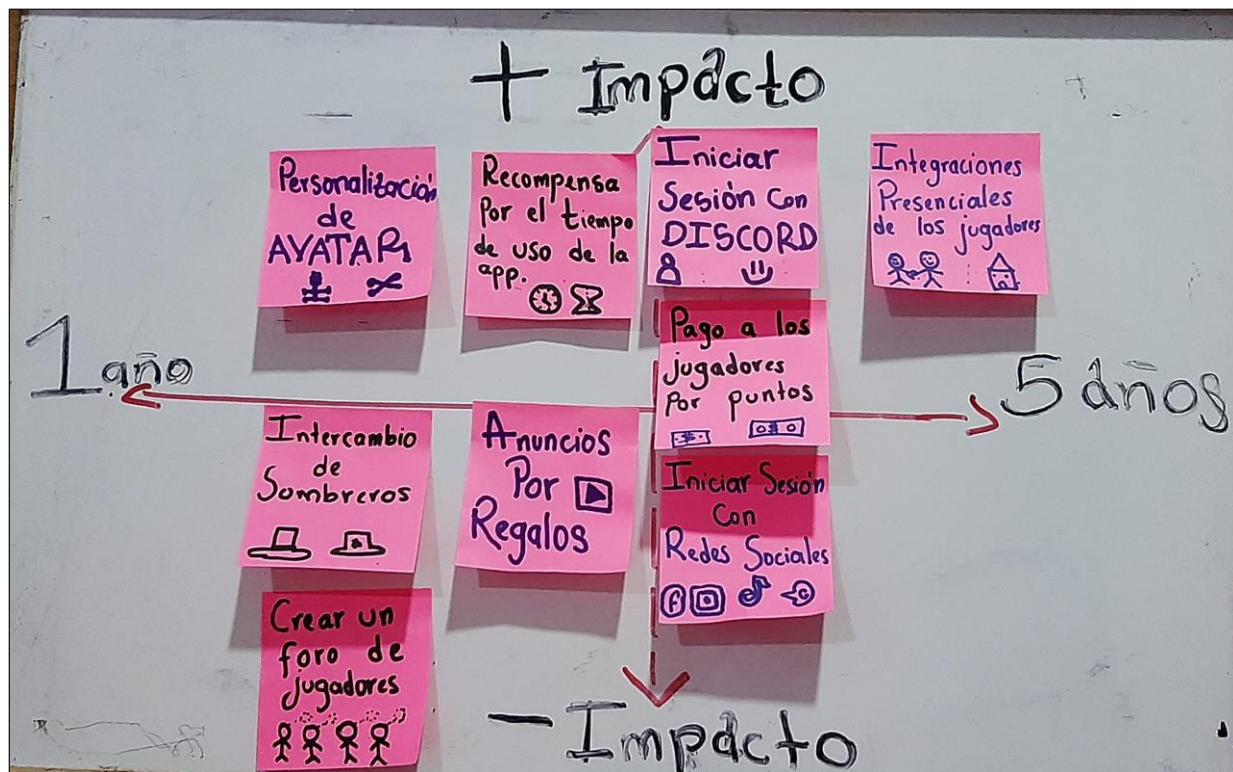 + Impacto
Personalización
de
AVATAR
Recompensa
Por el tiempo
de uso de la
app.
Iniciar
Sesión Con
DISCORD
Integraciones
Presenciales
de los jugadores
Pago a los
jugadores
Por puntos
1 año
5 años
Intercambio
de
Sombreros
Anuncios
Por
Regalos
Iniciar Sesión
Con
Redes Sociales
Crear un
foro de
jugadores
- Impacto